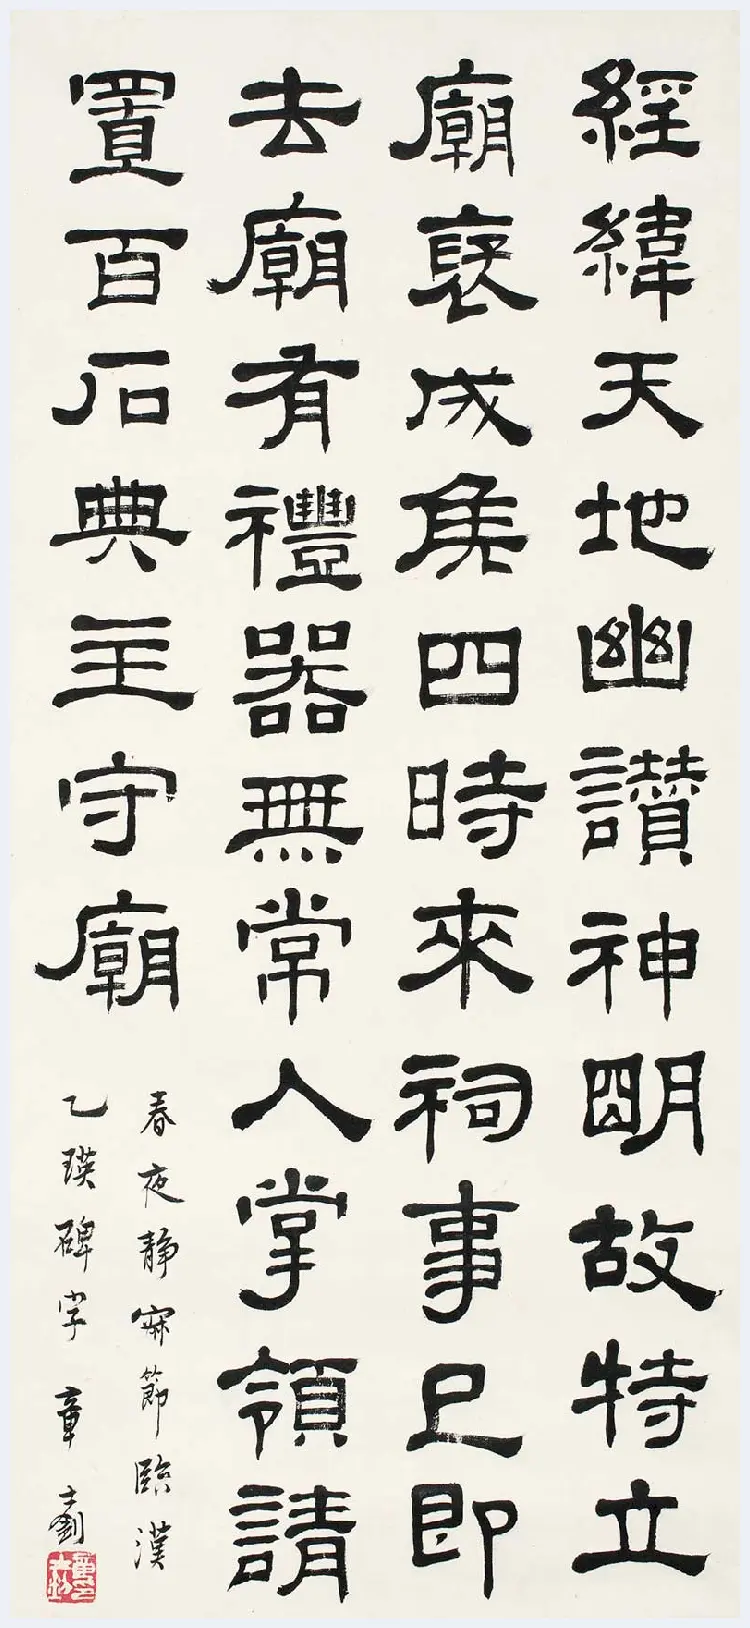 經緯天地幽讃神明故特立
廟褒成侯四時來祠事已即
去廟有禮器無常人掌領請
置百石典主守廟
春夜静寐節臨漢
乙瑛碑字 章士